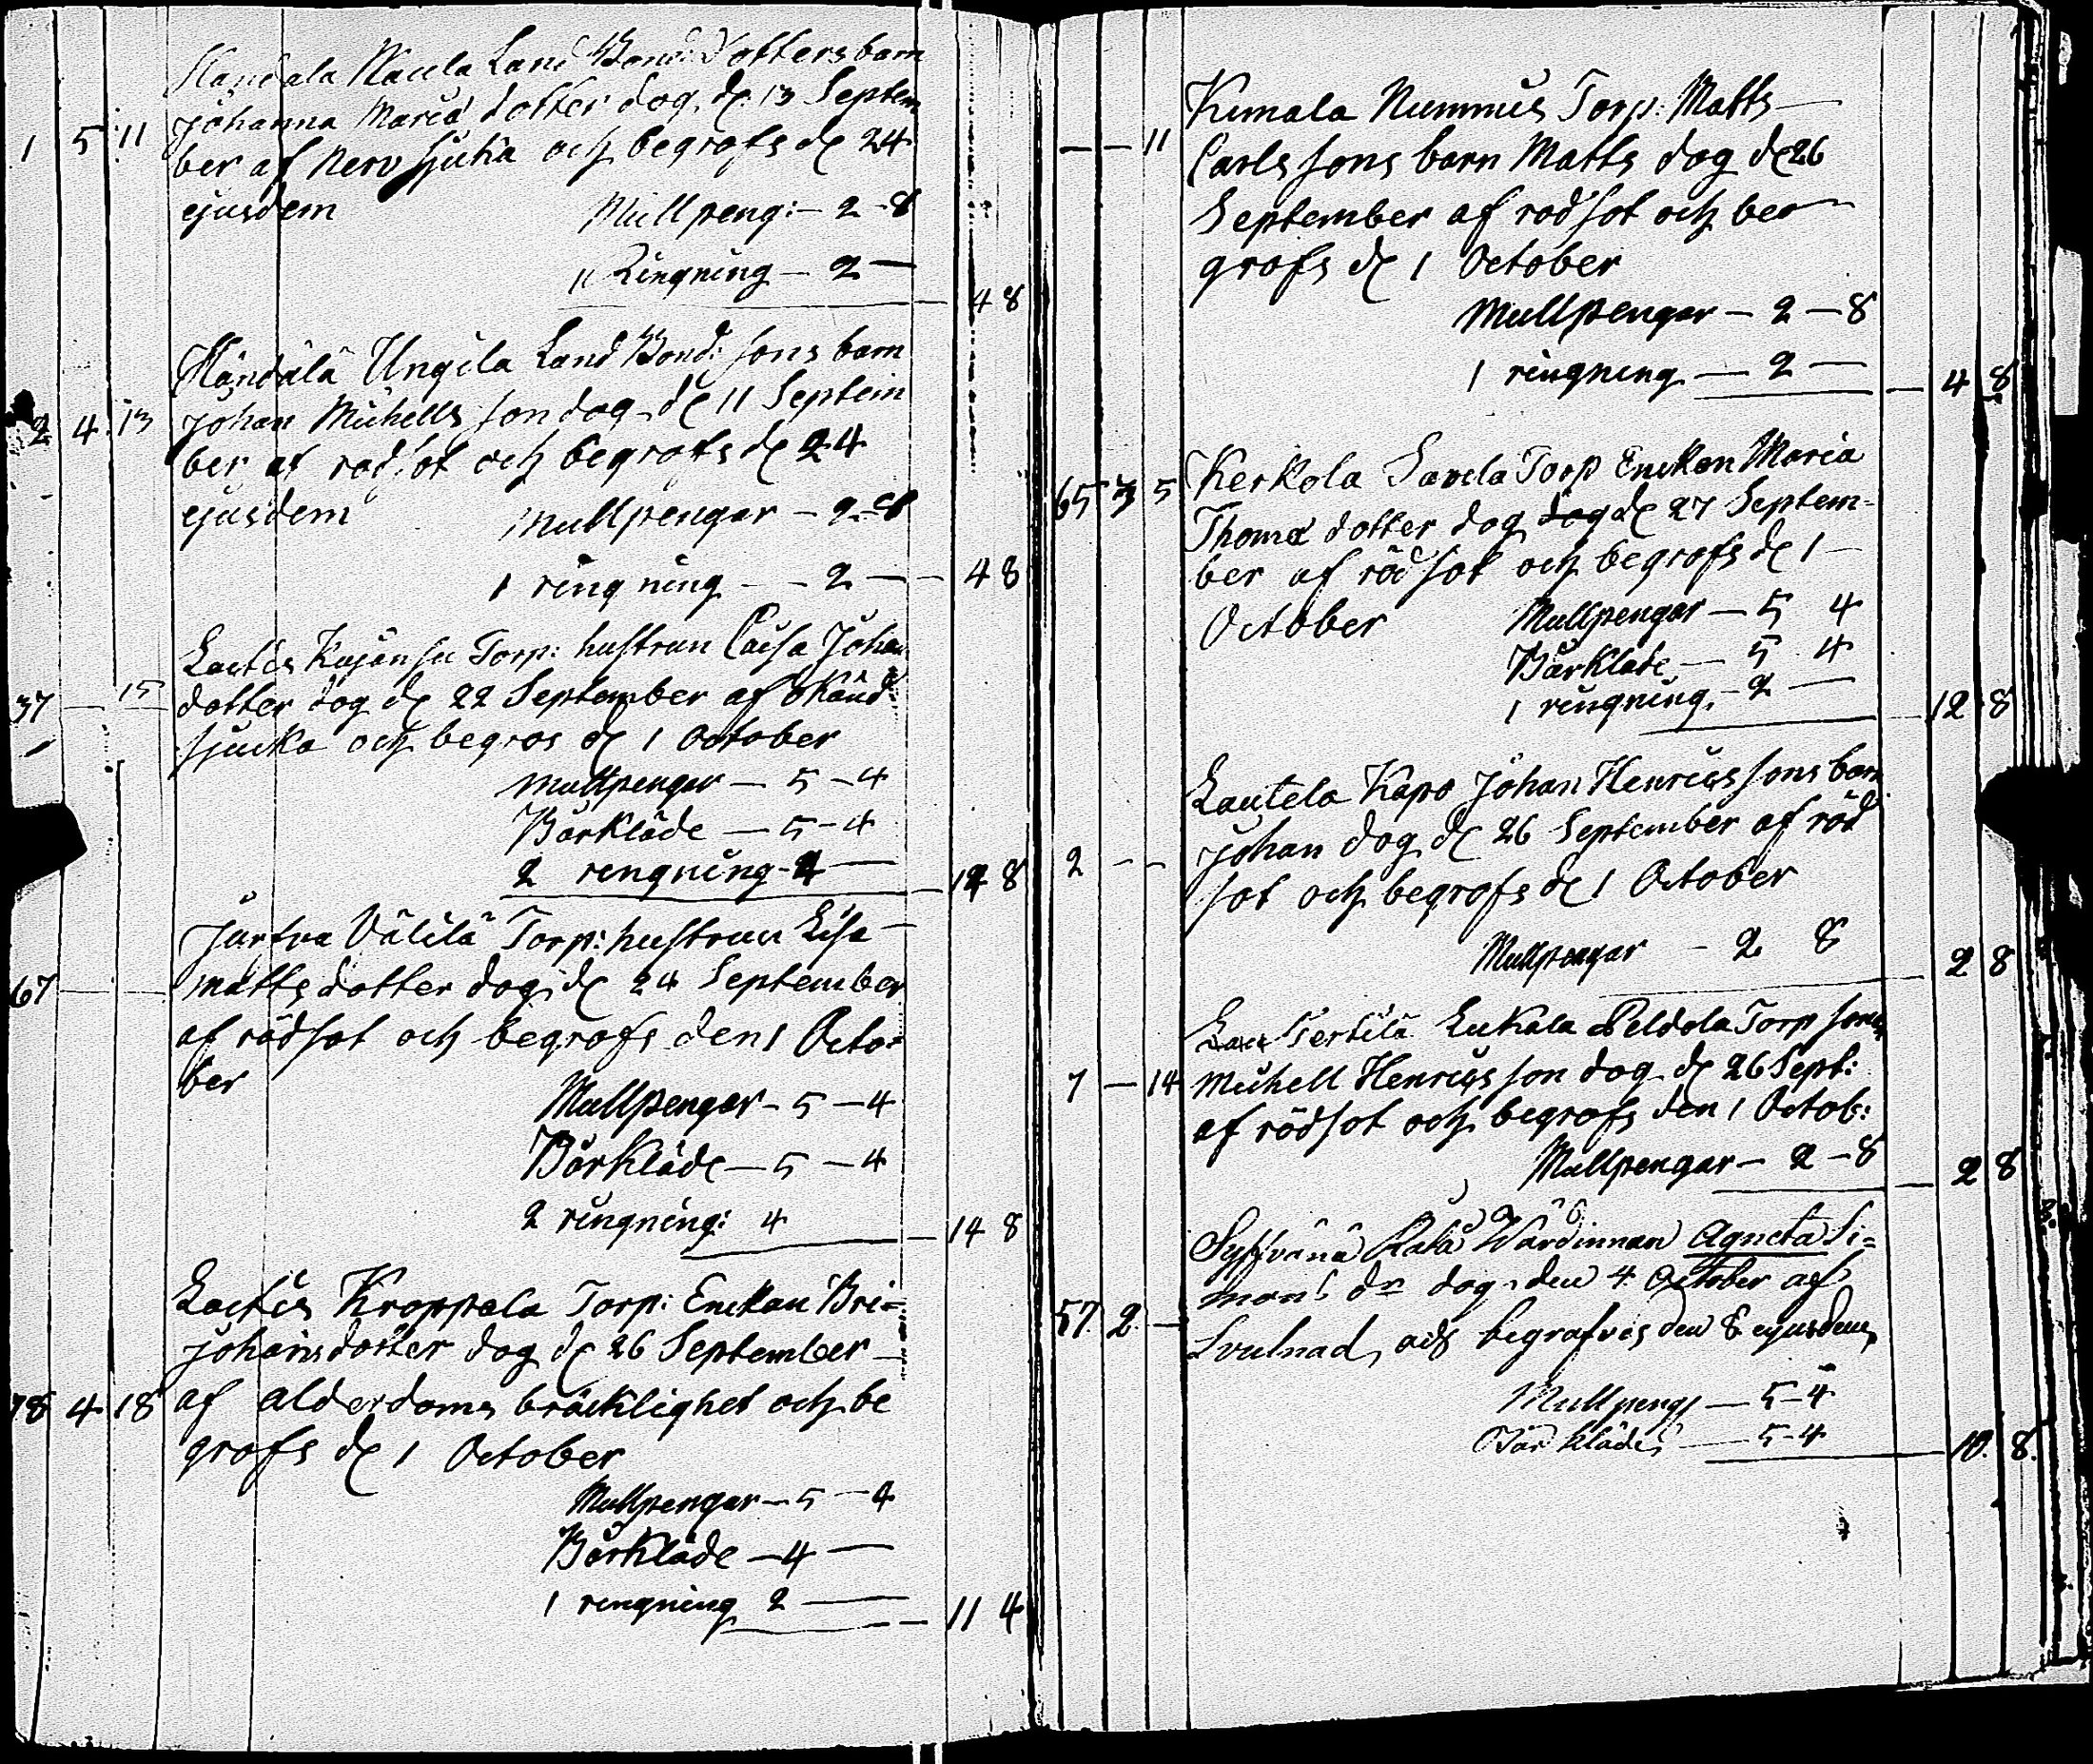 Handala Naula Land Bond: dottersbarn
1 5 11 Johanna Maria dotter dog. d: 13 Septem
ber af Nerv sjuka och begrofs d: 24
ejusdem Mullpeng:– 2 – 8
1 Ringning – 2 –
4 8
Handälä Ungila Land Bond: sons barn
2 4 13 Johan Michells son dog d: 11 Septem
ber af rodsot och begrofs d: 24
ejusdem Mullpengar – 2 – 8
1 ringning – – 2 – – 4 8
Torp: hustrun Caisa Johans
37 – 15 dotter dog d: 22 September af okänd
sjucka och begros d: 1 October
Mullpengar – 5 – 4
Bårkläde – 5 – 4
2 rengning – 4 – 14 8
Välilä Torp: hustrun Lisa
67 – – Mattsdotter dog d: 24 September
af rödsot och begrofs den 1 Octo=
ber
Mullpengar – 5 – 4
Bårkläde – 5 – 4
2 ringning: 4 – 14 8
Kroppala Torp: Enckan Bri=
Johansdotter dog d: 26 September –
78 4 18 af alderdoms bräcklighet och be
grofs d: 1 October
Mullpengar – 5 – 4
Bårkläde – 4 –
1 rengning 2 – – 11 4
Kumala Nummis Torp: Matts –
– – 11 Carlssons barn Matts dog d: 26
September af rodsot och be
grofs d: 1 October
Mullpengar – 2 – 8
1 ringning – 2 – – 4 8
Kerkola Savela Torp Enckan Maria
65 3 5 Thomæ dotter dog dog d: 27 Septem-
ber af rödsot och begrofs d: 1 –
October Mullpengar – 5 4
Bårkläde – 5 4
1 ringning – 2 – 12 8
Lautela Kapo Johan Henricssons barn
2 – – Johan dog d: 26 September af röd
sot och begrofs d: 1 October
Mullpengar – 2 8 2 8
Lau Tertilä Lukala Peldola Torp sons
7 – 14 Michell Henricsson dog d: 26 Sept:
af rödsot och begrofs den 1 Octob:
Mullpengar – 2 – 8 – 2 8
Syfvänä Wärdinnan Agneta Si=
mons dr dog den 4 October af
57 2 – Svulnad, och begrafves den 8 ejusdem,
Mullpeng – 5 – 4
Bår kläde – 5 – 4 10. 8.